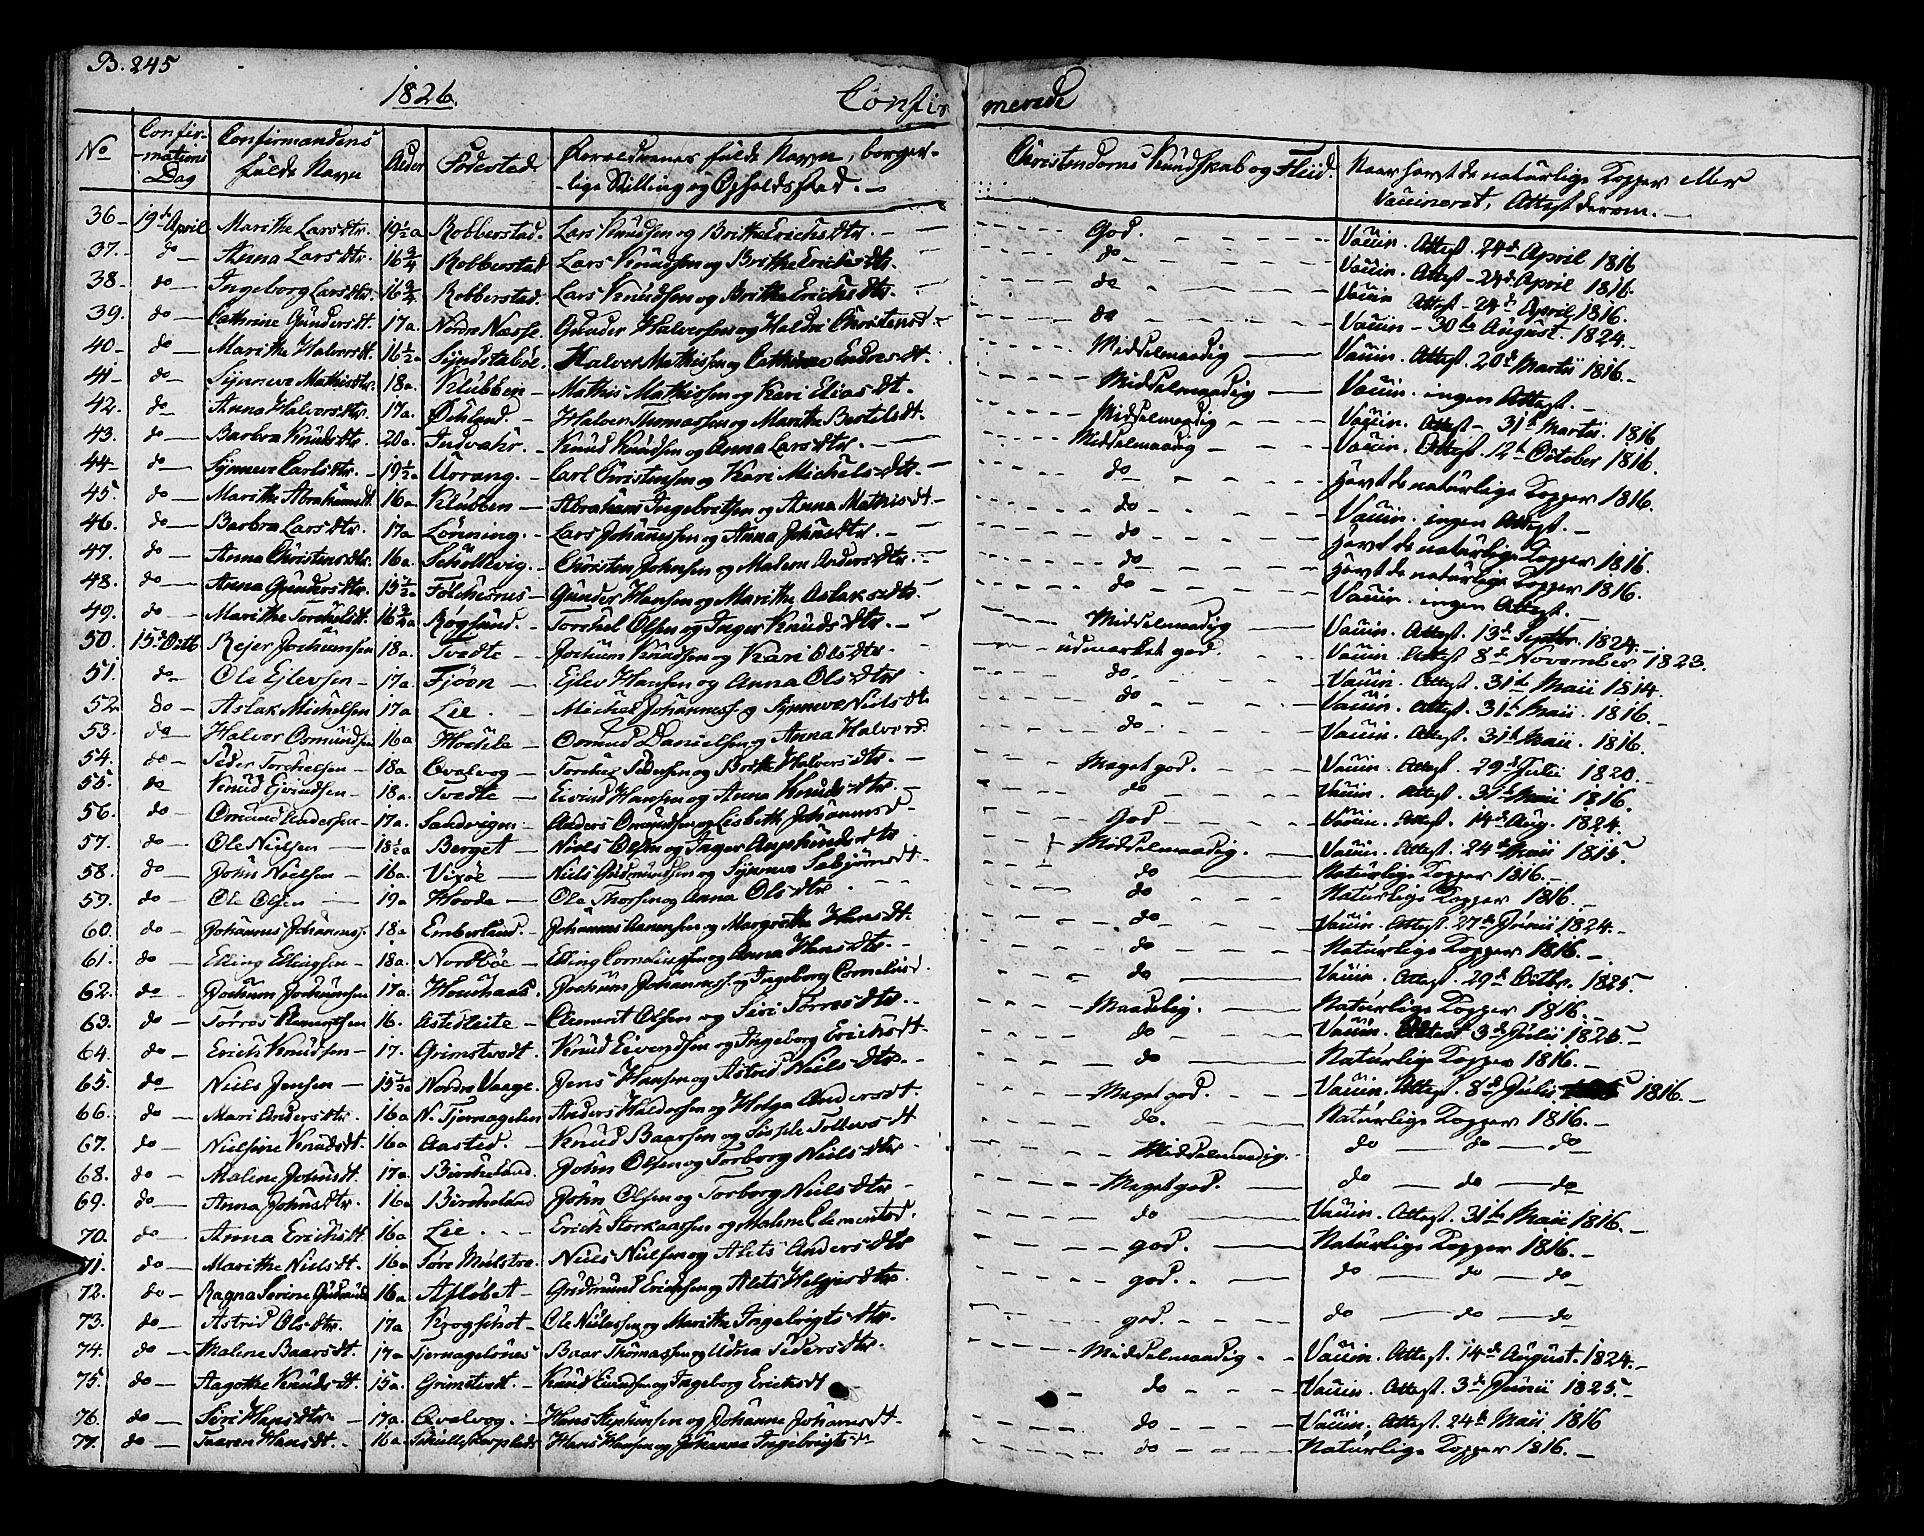 B. 245
1826. Confir merede
No Confir-mations Dag Confirmandens fulde Navn Alder Fødested Forældrenes fulde Navn, borger-lige Stilling og Opholdsted. Christendoms Kundskab og Fliid. Naar havt de naturlige Kopper eller Vaccineret, Attest derom.
36 19de April Marithe Larsdtr. 19½ a Robberstad. Lars Knudsen og Brithe Erichsdtr. God. Vaccin. Attest. 24de April 1816
37. do Anna Larsdtr. 16¾ Robberstad Lars Knudsen og Brithe Erichsdtr. do Vaccin. Attest 24de April 1816.
38 do Ingeborg Larsdtr. 16¾ Robberstad. Lars Knudsen og Brithe Erichsdtr. do Vaccin Attest 24de April 1816.
39. do Cathrine Gundersdt. 17a. Nordre Næsse. Gunder Halversen og Haldri Christensd. do Vaccin 30te August. 1824.
40 do Marithe Halversdt. 16½a Halver Mathissen og Cathrine Endresdt. Middelmaadig Vaccin. Attest. 20de Martii 1816.
41 do Synneve Mathisdtr. 18a. Klubben Mathis Mathissen og Kari Eliasdt. Middelmaadig Vaccin. ingen Attest.
42. do Anna Halvorsdtr. 17a. Økland. Halver Thomassen og Marithe Bertelsdt. Middelmaadig Vaccin. Attest 31te Martii. 1816
43. do Barbra Knudsdtr. 20a. Indvahr. Knud Knudsen og Anna Larsdtr. Middelmaadig Vaccin. Attest. 12te October 1816.
44 do Synneve Carlsdtr. 19½a Urrang. Carl Christensen og Kari Michelsdtr. do havt de naturlige Kopper 1816.
45. do Marithe Abrahamsdt. 16a Klubben Abraham Ingebritsen og Anna Mathisdt do Vaccin. ingen Attest.
46. do Barbra Larsdtr. 17a Lønning. Lars Johannessen og Anna Johnsdtr. do havt de naturlige Kopper 1816.
47. do Anna Christensdtr. 16a Schollvig. Christen Johnsen og Madern Andersdtr. do havt de naturlige Kopper 1816.
48. do Anna Gundersdtr. 15½a Folchesnes Gunder Hansen og Marithe Aslaksdtr. do Vaccin. ingen Attest.
49. do Marithe Torchelsdt. 16¾a Røgsund. Torchel Olsen og Inger Knudsdtr. Middelmaadig Vaccin. Attest. 13de Septbr. 1824.
50. 15de Octb. Rejer Jochumsen 18a. Tvedte Jochum Knudsen og Kari Olsdtr. udmærket god. Vaccin. Attest 8de November 1823.
51. do Ole Ejlevsen 17a Fjøen Ejlev Hansen og Anna Olsdtr do. Vaccin. Attest. 31te Maii 1814.
52. do Aslak Michelsen 17a Lie. Michel Johanness. og Synneve Nielsdt do Vaccin. Attest. 31te Maii. 1816.
53. do Halver Osmundsen 16a Osmund Danielsen og Anna Halversd. do. Vaccin. Attest. 31te Maii. 1816.
54. do Peder Torchelsen 18a Qvalvog Torchel Pedersen og Brithe Halversdtr. Meget god. Vaccin. Attest. 29de Julii 1820.
55. do Knud Ejvindsen 18a. Tvedte Eivind Hansen og Anna Knudsdtr. do Vaccin. Attest. 31te Maii 1816.
56. do Osmund Andersen 17a. Sandvigen Anders Omundsen og Lisbeth Johannesd God Vaccin. Attest. 14de Aug. 1824.
57. do Ole Nielsen 18½a Berget Niels Olsen og Inger Middelmaadig. Vaccin. Attest. 24de Maii 1815.
58. do John Nielsen 16a. Vixøe Niels Gudmundsen og Synneve Torbjørnsdt. do Naturlige Kopper 1816.
59. do Ole Olsen 19a Hovda Ole Thorsen og Anna Olsdtr. do Naturlige Kopper 1816.
60. do Johannes Johanness. 18a Emberland. Johannes Hansen og Margrethe Hansdt. do Vaccin. Attest. 27de Junii 1824.
61. do Elling Ellingsen 18a. Nordbøe Elling Corneliussen og Anna Hansdtr. do Naturlige Kopper 1816.
62. do Jochum Jochumsen 17a. Jochum Johanness. og Ingeborg Corneliusd. do Vaccin. Attest. 29de Octbr. 1825.
63. do Torres Clemetsen 16. Aslesleite Clement Olsen og Siri Torresdtr. Maadelig. Naturlige Kopper 1816.
64. do Erich Knudsen 17. Grimstvedt. Knud Eivendsen og Ingeborg Erichsdt. do Vaccin. Attest 3de Julii 1826
65. do Niels Jensen 15½a Nordre Vaage. Jens Hansen og Astrid Nielsdtr. do Naturlige Kopper 1816.
66. do Mari Andersdtr. 16a N. Tjernagelen Anders Haldorsen og Helga Andersdt. Meget god. Vaccin. Attest. 8de Julii 1816.
67. do Nielsine Knudsdt. 16a Aasted. Knud Baarsen og Sissele Tollevsdt do. Naturlige Kopper 1816.
68. do Malene Johnsdt. 17a Bircheland. John Olsen og Torborg Nielsdtr Middelmaadig. do do do
69. do Anna Johnsdtr. 16a Bircheland John Olsen og Torborg Nielsdtr Meget god. do do do
70. do Anna Erichsdt 16a Lie. Erich Storkaassen og Malene Clementsd. do Vaccin. Attest. 31te Maii 1816.
71. do Marithe Nielsdt. 16a Niels Nielsen og Alets Andersdtr god. Naturlige Kopper 1816.
72. do Ragna Serine Gudmund 16a Asløbet Gudmund Erichsen og Alets Helgesdtr. god. do do do
73. do Astrid Olsdtr. 17a Krogschot Ole Nielssen og Marithe Ingebrigtsdtr. god. do do do
74. do Malene Baarsdt. 17a Tjernagelsnes Baar Thomassen og Udna Pedersdtr. Middelmaadig Vaccin. Attest. 14de August. 1824.
75. do Aagothe Knudsdt. 15a. Grimstvedt. Knud Eivindsen og Ingeborg Erichsdt do Vaccin. Attest. 3de Junii 1825.
76. do Siri Hansdtr 17a Qvalvog. Hans Stephensen og Johanne Johannesdt. do Vaccin. Attest. 24de Maii 1816
77. do Taaren Hansdt. 16a Hans Hansen og Johanna Ingebrigtsdtr do Naturlige Kopper 1816.